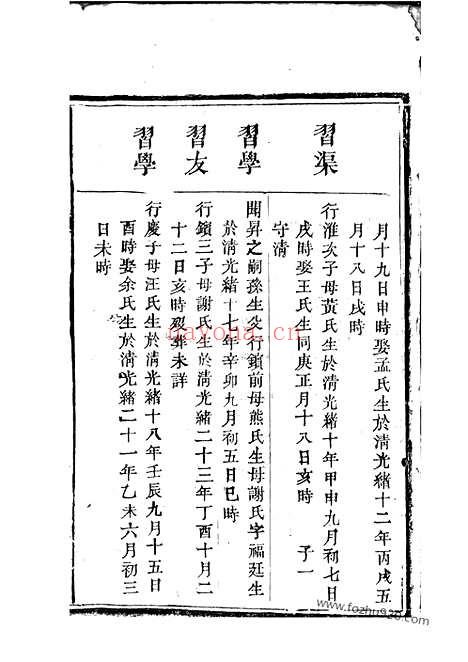 月十九日申時娶孟氏生於清光緒十二年丙戌五
月十八日戌時
習渠
行淮次子母黃氏生於清光緒十年甲申九月初七日
戌時娶王氏生同庚正月十八日亥時 子一
守清
習學
開昇之嗣孫生父行鎖前母熊氏生母謝氏字福廷生
於清光緒十七年辛卯九月初五日巳時
習友
行鎖三子母謝氏生於清光緒二十三年丁酉十月二
十二日亥時歿葬未詳
習學
行慶子母汪氏生於清光緒十八年壬辰九月十五日
酉時娶余氏生於清光緒二十一年乙未六月初三
日未時
nayona.cn
www.fozhu920.com